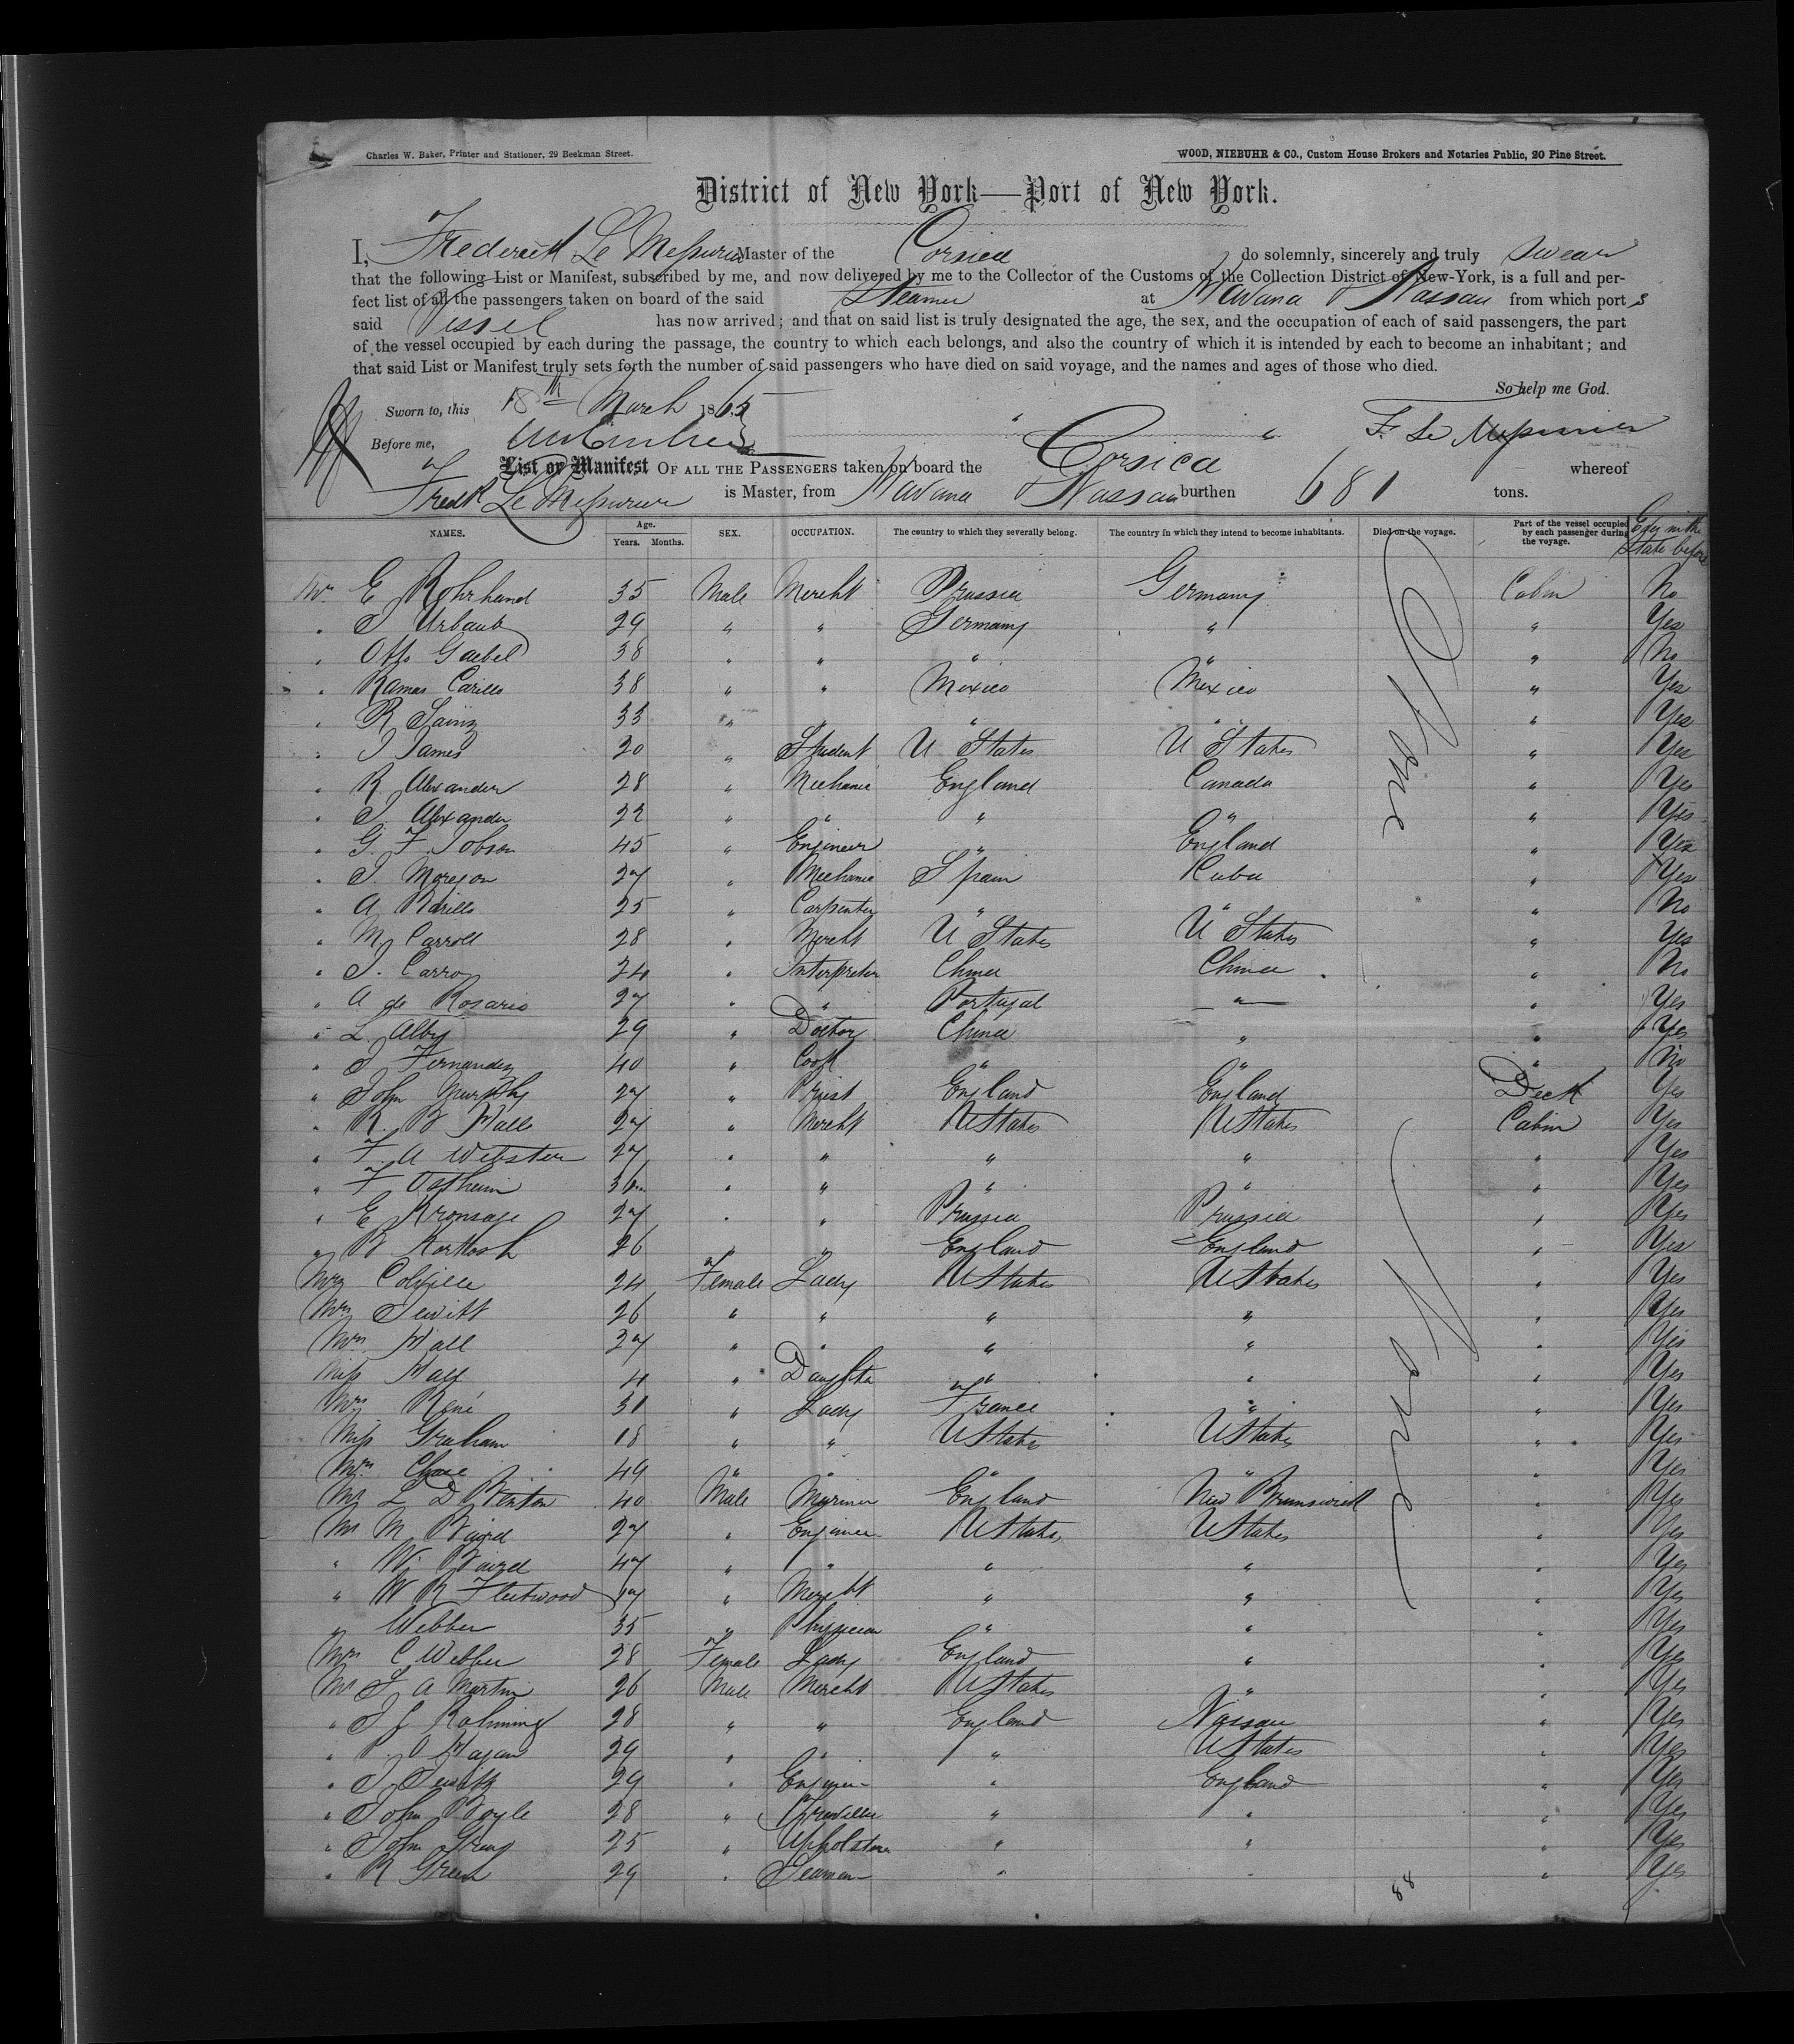 Charles W. Baker, Printer and Stationer, 29 Beekman Street.
WOOD, NIEBUHR & CO., Custom House Brokers and Notaries Public, 20 Pine Street.
District of New York—Port of New York.
I, Frederick Le Mesurier Master of the Corsica do solemnly, sincerely and truly swear
that the following List or Manifest, subscribed by me, and now delivered by me to the Collector of the Customs of the Collection District of New-York, is a full and per-
fect list of all the passengers taken on board of the said Steamer at Havana & Nassau from which port s
said Vessel has now arrived; and that on said list is truly designated the age, the sex, and the occupation of each of said passengers, the part
of the vessel occupied by each during the passage, the country to which each belongs, and also the country of which it is intended by each to become an inhabitant; and
that said List or Manifest truly sets forth the number of said passengers who have died on said voyage, and the names and ages of those who died.
So help me God.
Sworn to, this 18th March 1865
Before me, F. Le Mesurier
List or Manifest OF ALL THE PASSENGERS taken on board the Corsica whereof
Fredk Le Mesurier is Master, from Havana & Nassau burthen 681 tons.
NAMES. Age. Years. Months. SEX. OCCUPATION. The country to which they severally belong. The country in which they intend to become inhabitants. Died on the voyage. Part of the vessel occupied by each passenger during the voyage. Ever in the State before
Mr E Rohrhand 35 Male Mercht Prussia Germany Cabin No
" J Urbach 29 " " Germany " " Yes
" Otto Gaebel 38 " " " " " No
" Ramas Carillo 38 " " Mexico Mexico " Yes
" R Sainz 33 " " " " " Yes
" J James 20 " Student U States U States " Yes
" R. Alexander 28 " Mechanic England Canada " Yes
" J. Alexander 22 " " " " " Yes
" G. F. Jobson 45 " Engineer " England " Yes
" J Morejon 27 " Mechanic Spain Cuba " Yes
" A 25 " Carpenter " " " No
" M Carroll 28 " Mercht U States U States " Yes
" J. Carroy 24 " Interpreter China China " No
" A de Rosario 27 " " Portugal " " Yes
" L. Alby 29 " Doctor China " " Yes
" J Fernandez 40 " Cook " " " No
" John Murphy 27 " Priest England England Deck Yes
" R. B Hall 27 " Mercht U States U States Cabin Yes
" F. A Webster 27 " " " " " Yes
" F Ostheim 36 " " " " " Yes
" E Kronsage 27 " " Prussia Prussia " Yes
" B 26 " " England England " Yes
Mrs Colville 24 Female Lady U States U States " Yes
Mrs Jewitt 26 " " " " " Yes
Mrs Hall 27 " " " " " Yes
Miss Hall 4 " Daughter " " " Yes
Mrs René 31 " Lady France " " Yes
Miss Graham 18 " " U States U States " Yes
Mrs Chase 49 " " " " " Yes
Mr L D Benton 40 Male Mariner England New Brunswick " Yes
Mr M Baird 27 " Engineer U States U States " Yes
" W. Baird 47 " " " " " Yes
" W R Fleetwood 17 " Mercht " " " Yes
" Webber 35 " Physician " " " Yes
Mrs C Webber 28 Female Lady England " " Yes
Mr F A Martin 26 Male Mercht U States " " Yes
" J J Rahming 28 " " England Nassau " Yes
" P. O Hagan 29 " " " U States " Yes
" J Jewitt 29 " Engineer " England " Yes
" John Boyle 28 " Traveller " " " Yes
" John Gray 25 " Upholsterer " " " Yes
" R Green 29 " Seaman " " " Yes
None
None
88